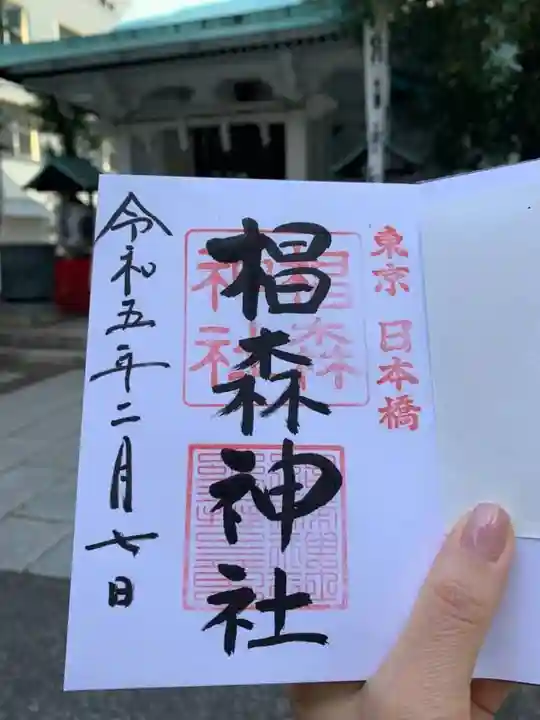 東京 日本橋
椙森神社
椙森神社
令和五年二月七日